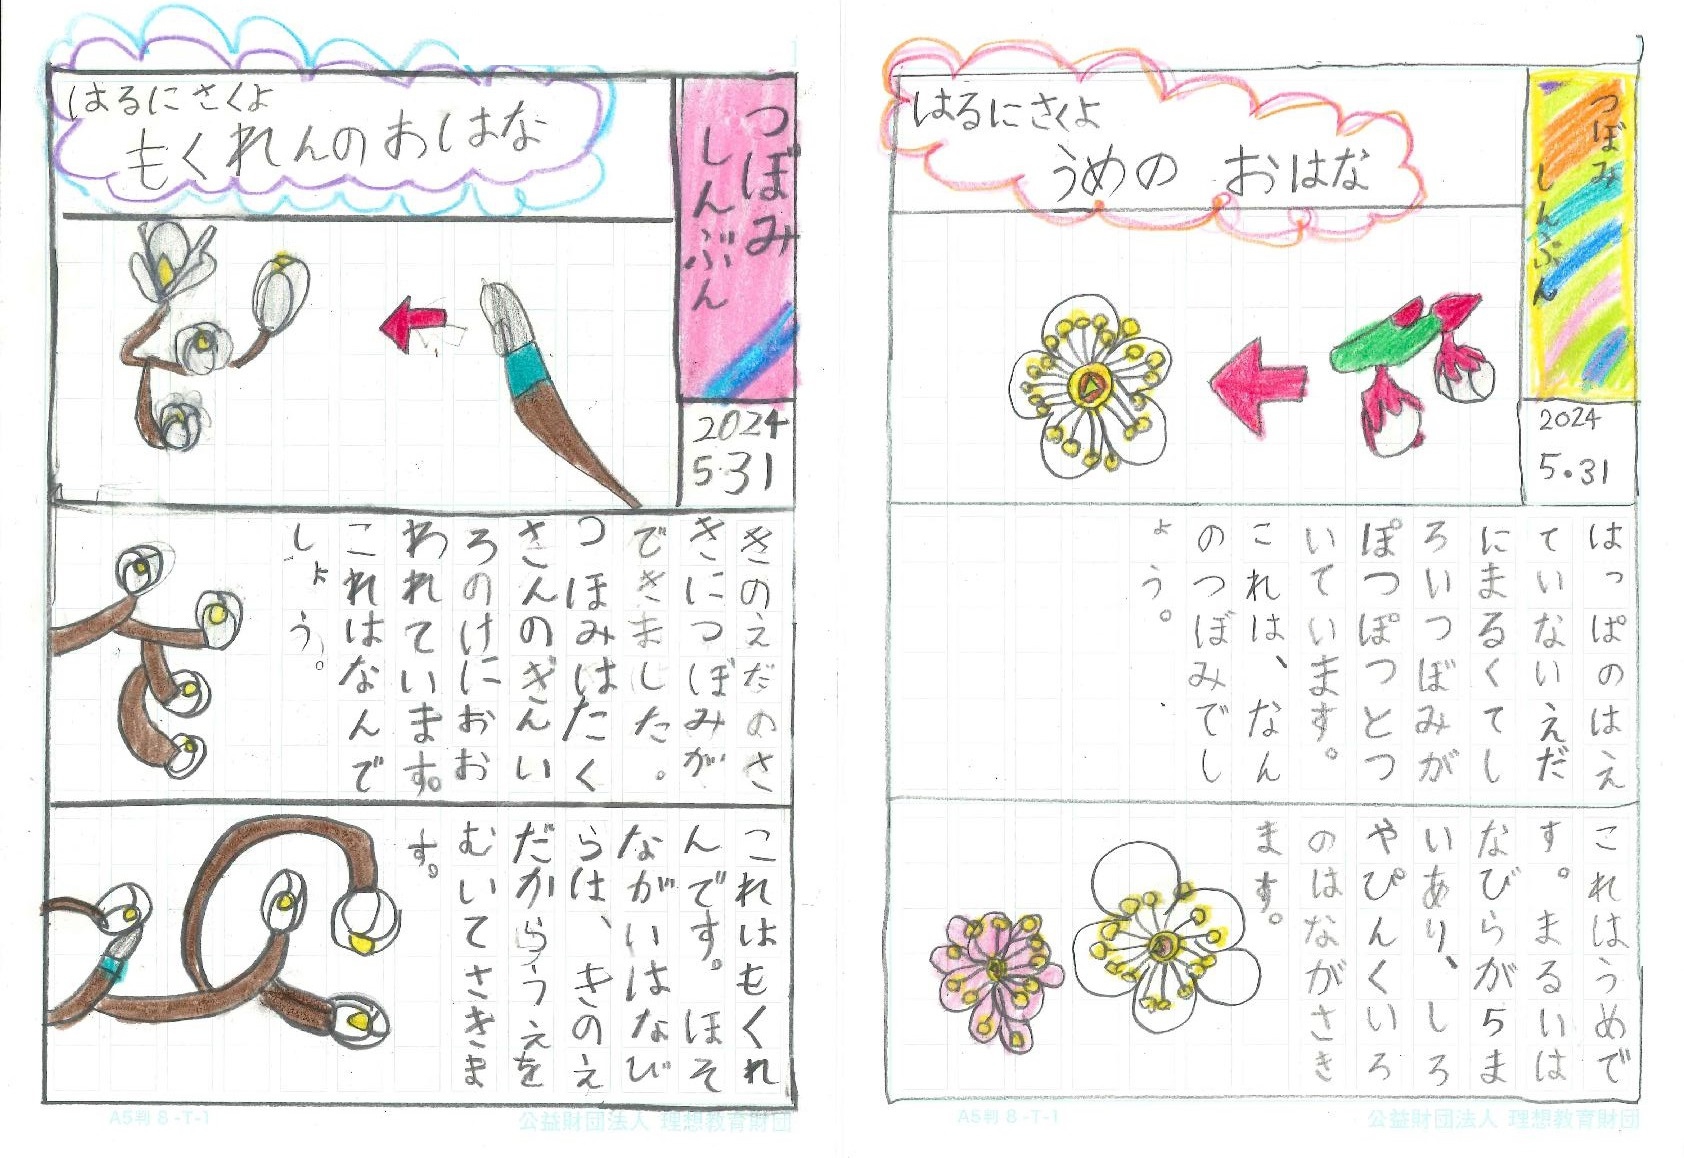 つぼみ
しんぶん
2024
5.31
はるにさくよ
もくれんのおはな
きのえだのさ
きにつぼみが
できました。
つほみはたく
さんのぎんい
ろのけにおお
われています。
これはなんで
しょう。
これはもくれ
んです。ほそ
ながいはなび
らは、きのえ
だからうえを
むいてさきま
す。
A5判 8-T-1
公益財団法人 理想教育財団
つぼみ
しんぶん
2024
5.31
はるにさくよ
うめの おはな
はっぱのはえ
ていないえだ
にまるくてし
ろいつぼみが
ぽつぽつとつ
いています。
これは、なん
のつぼみでし
ょう。
これはうめで
す。まるいは
なびらが5ま
いあり、しろ
やぴんくいろ
のはながさき
ます。
A5判 8-T-1
公益財団法人 理想教育財団